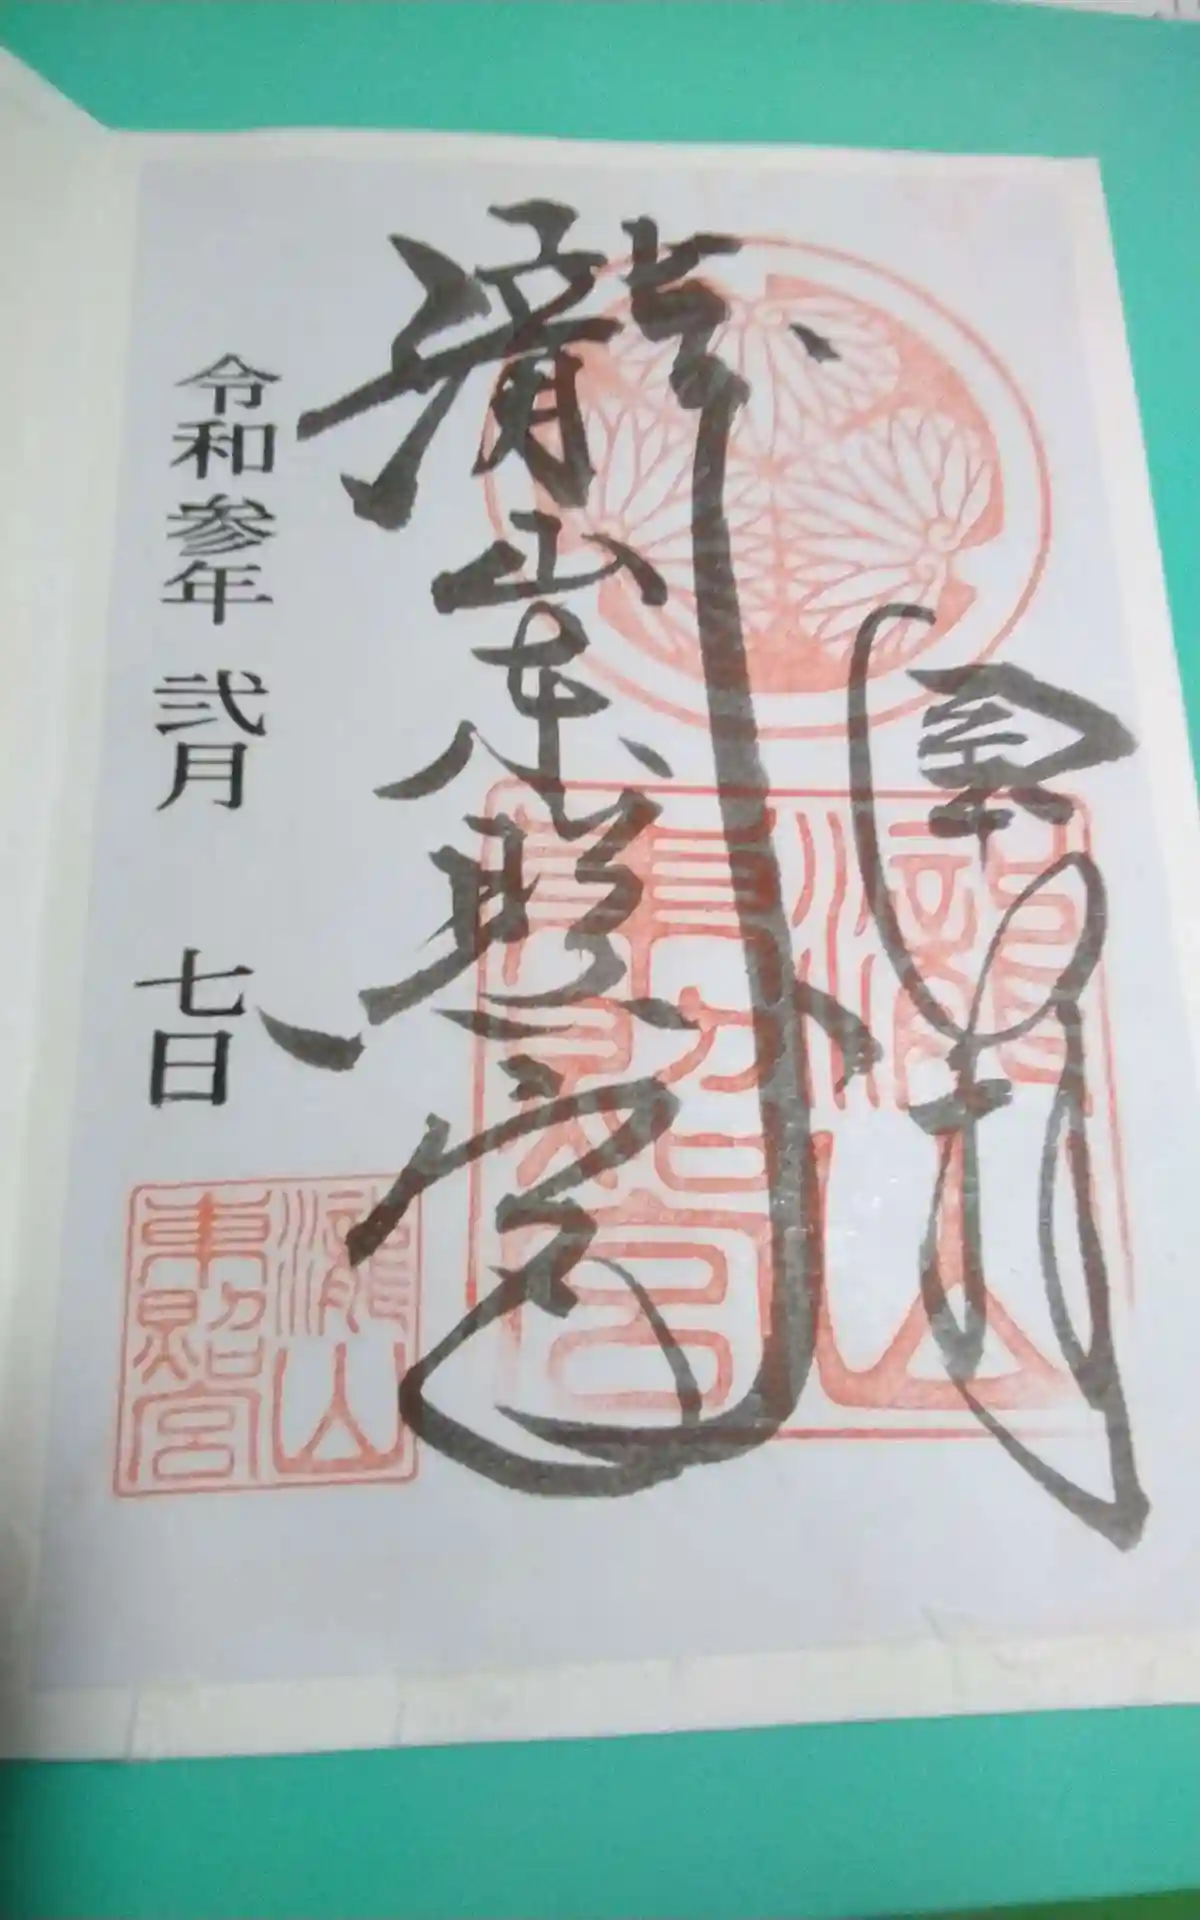 瀧山東照宮
瀧山
東照宮
令和参年 弐月 七日
瀧山
東照宮